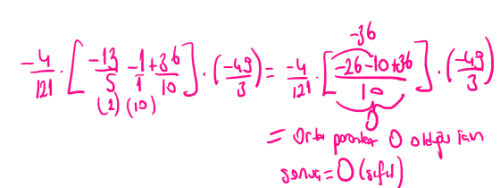 -36
-4/121 · [ -13/5 - 1/1 + 36/10 ] · (-49/3) = -4/121 · [ -26-10+36 / 10 ] · (-49/3)
(2) (10)
0
= Orta parantez 0 olduğu için
sonuç = 0 (sıfır)